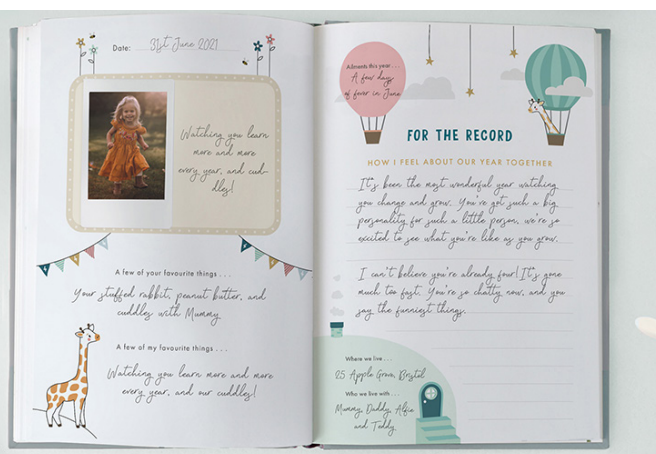 Date: 31st June 2021
Watching you learn
more and more
every year, and cud-
dles!
A few of your favourite things . . .
Your stuffed rabbit, peanut butter, and
cuddles with Mummy.
A few of my favourite things . . .
Watching you learn more and more
every year, and our cuddles!
Ailments this year . . .
A few days
of fever in June
FOR THE RECORD
HOW I FEEL ABOUT OUR YEAR TOGETHER
It's been the most wonderful year watching
you change and grow. You've got such a big
personality for such a little person, we're so
excited to see what you're like as you grow.
I can't believe you're already four! It's gone
much too fast. You're so chatty now, and you
say the funniest things.
Where we live . . .
25 Apple Grove, Bristol
Who we live with . . .
Mummy, Daddy, Alfie
and Teddy